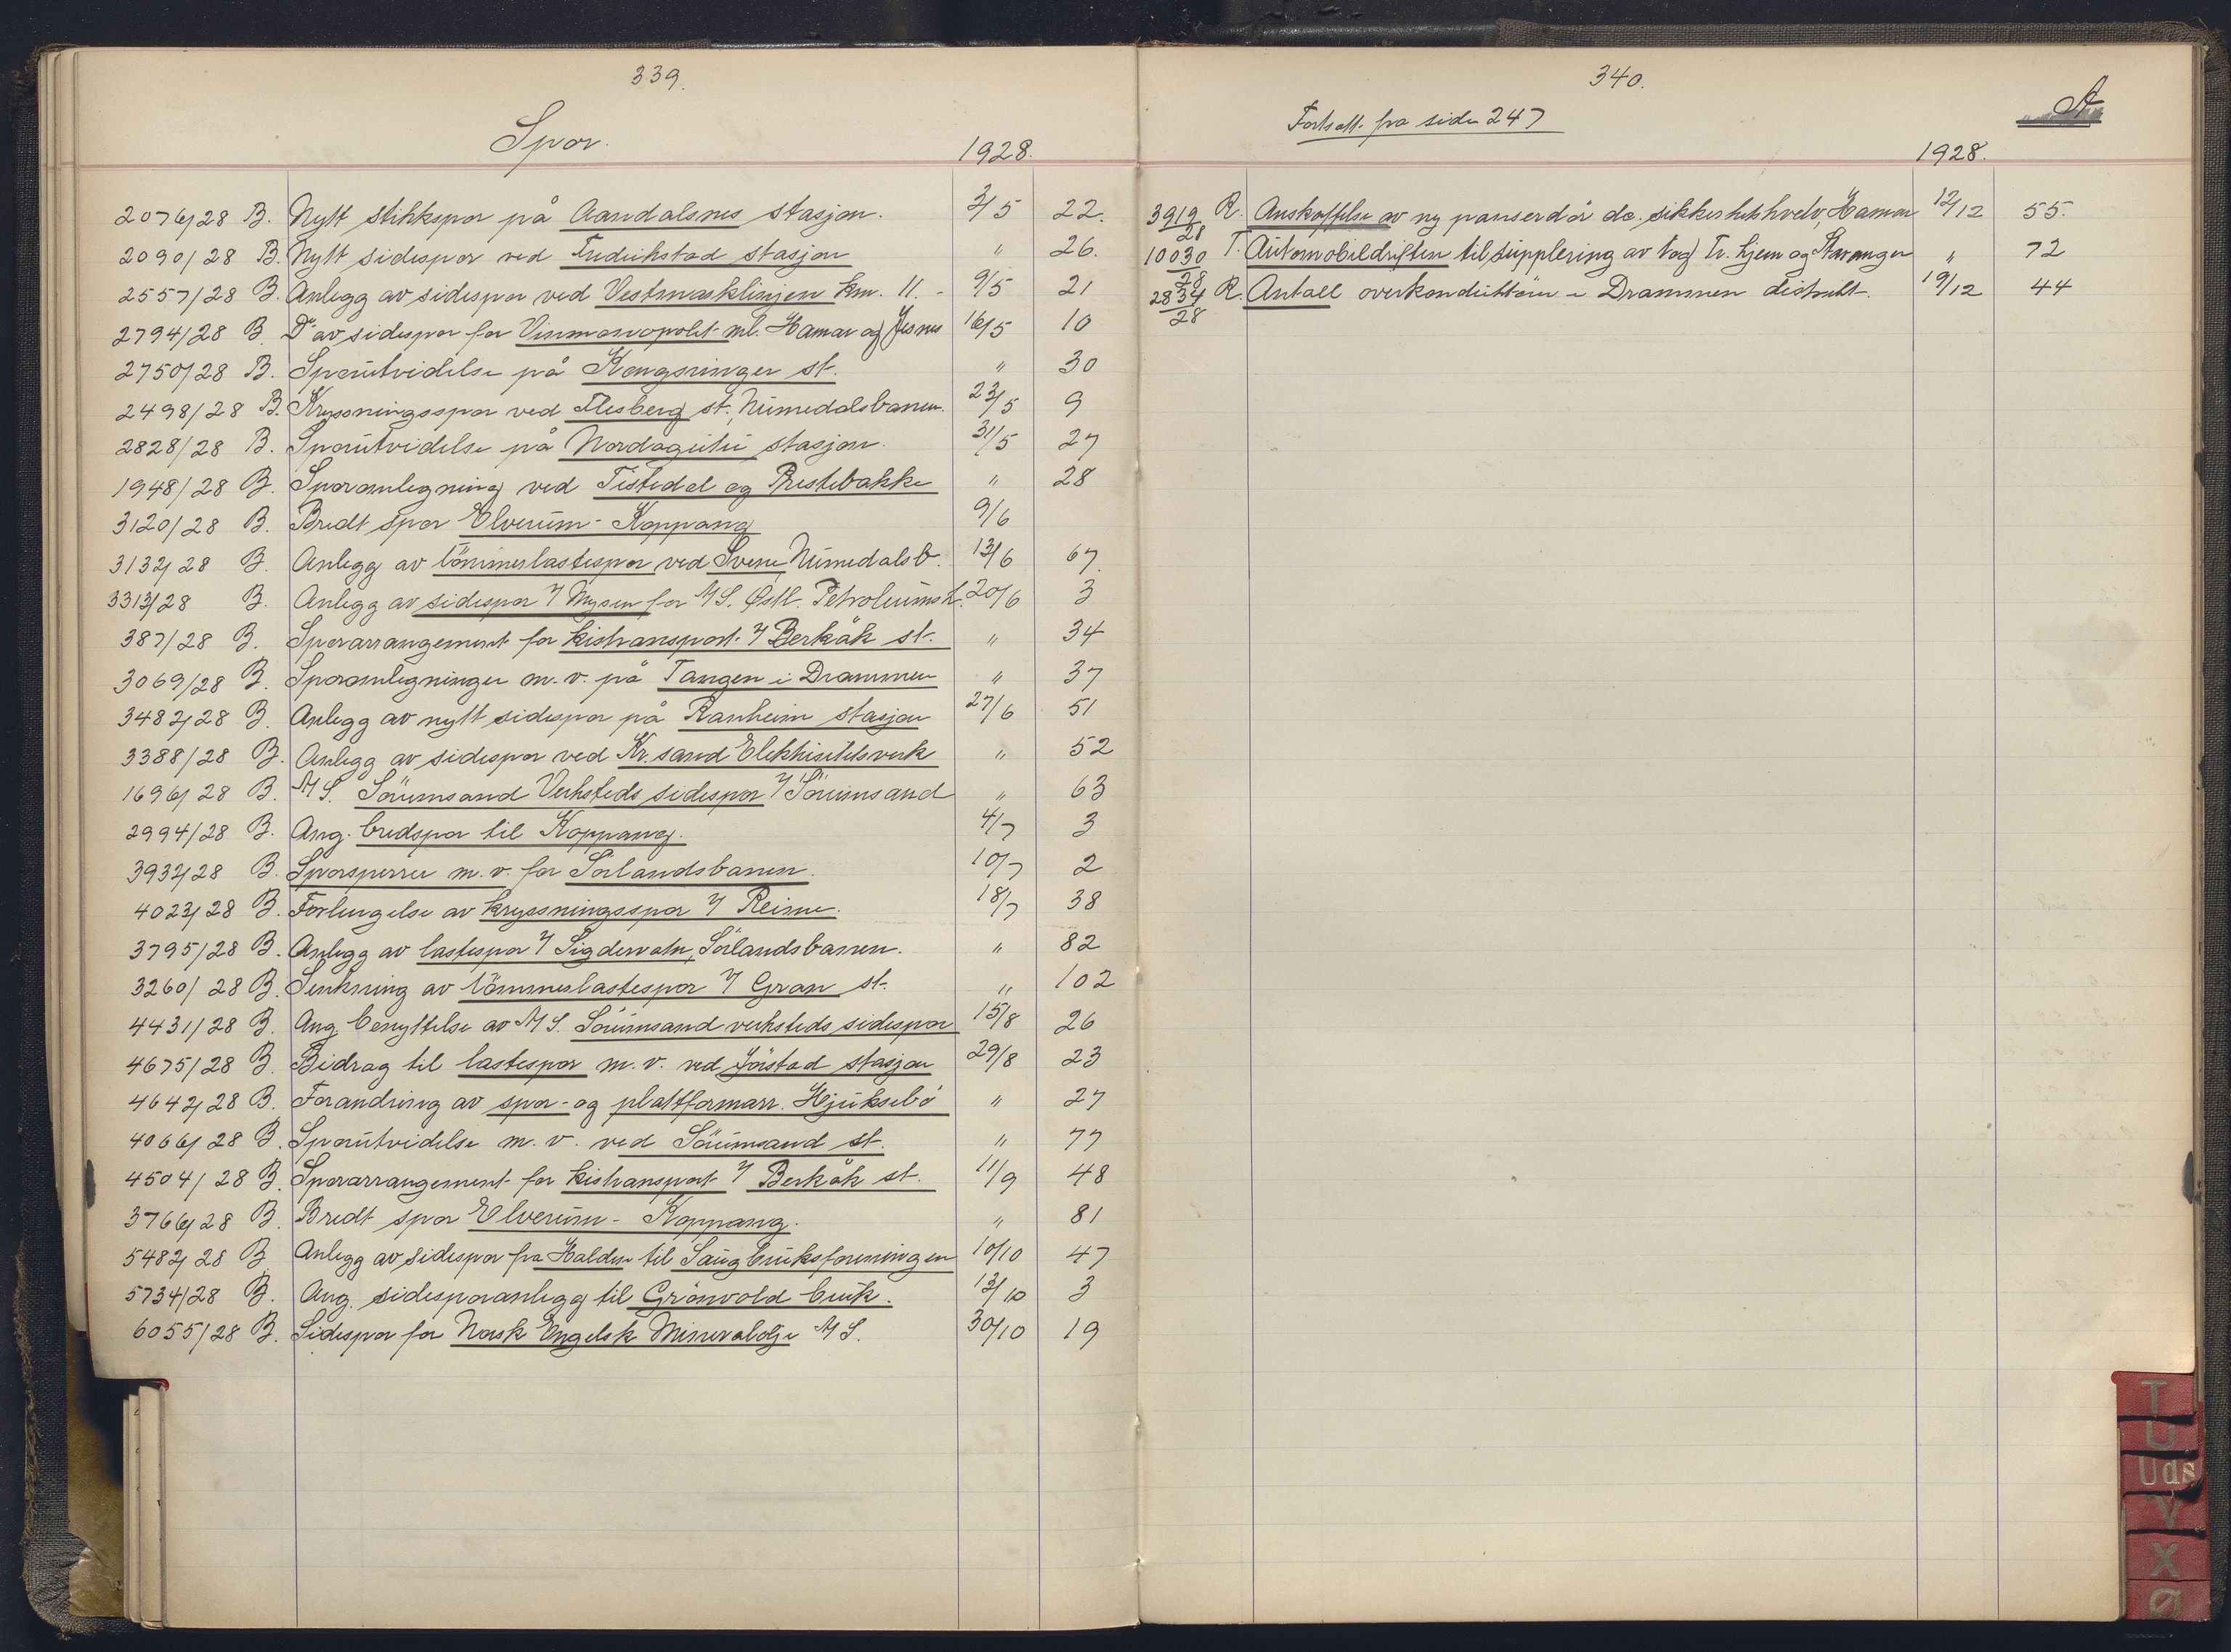 339.
Spor.
1928.
2076/28 B. Nytt stikkspor på Aandalsnes stasjon. 2/5 22.
2090/28 B. Nytt sidespor ved Fredrikstad stasjon " 26.
2557/28 B. Anlegg av sidespor ved Vestmarklinjen km. 11. - 9/5 21
2794/28 B. Do av sidespor for Vinmonopolet ml. Hamar og Jesnes 16/5 10
2750/28 B. Sporutvidelse på Kongsvinger st. " 30
2498/28 B. Kryssningsspor ved Flesberg st., Numedalsbanen. 23/5 9
2828/28 B. Sporutvidelse på Nordagutu stasjon. 31/5 27
1948/28 B. Sporomlegning ved Tistedal og Prestebakke " 28
3120/28 B. Bredt spor Elverum - Koppang 9/6
3132/28 B. Anlegg av tömmerlastespor ved Svene Numedalsb. 13/6 67.
3313/28 B. Anlegg av sidespor v/ Mysen for A/S. Østl. Petroleums k. 20/6 3
387/28 B. Sporarrangement for kistransport v/ Berkåk st. " 34
3069/28 B. Sporomlegninger m.v. på Tangen i Drammen " 37
3482/28 B. Anlegg av nytt sidespor på Ranheim stasjon 27/6 51
3388/28 B. Anlegg av sidespor ved Kr.sand Elektrisitetsverk " 52
1696/28 B. A/S. Sörumsand Verksteds sidespor v/ Sörumsand " 63
2994/28 B. Ang. bredspor til Koppang. 4/7 3
3932/28 B. Sporsperrer m.v. for Sörlandsbanen. 10/7 2
4023/28 B. Forlengelse av kryssningsspor v/ Reime. 18/7 38
3795/28 B. Anlegg av lastespor v/ Sigdervatn, Sörlandsbanen. " 82
3260/28 B. Senkning av tömmerlastespor v/ Gran st. " 102
4431/28 B. Ang benyttelse av A/S. Sörumsand verksteds sidespor 15/8 26
4675/28 B. Bidrag til lastespor m.v. ved Jörstad stasjon 29/8 23
4642/28 B. Forandring av spor- og plattformarr. Hjuksebö " 27
4066/28 B. Sporutvidelse m.v. ved Sörumsand st. " 77
4504/28 B. Sporarrangement for kistransport v/ Berkåk st. 11/9 48
3766/28 B. Bredt spor Elverum - Koppang. " 81
5482/28 B. Anlegg av sidespor fra Halden til Saugbruksforeningen 10/10 47
5734/28 B. Ang. sidesporanlegg til Grönvold bruk. 13/10 3
6055/28 B. Sidespor for Norsk Engelsk Mineralolje A/S. 30/10 19
340.
Fortsatt fra side 247
A
1928.
3919/28 R. Anskaffelse av ny panserdör do. sikkerhetshvelv, Hamar 12/12 55.
10030/28 T. Automobildriften til supplering av tog Tr.hjem og Stavanger " 72
2834/28 R. Antall overkonduktörer i Drammen distrikt. 19/12 44
T
U
Uds
V
X
Ø